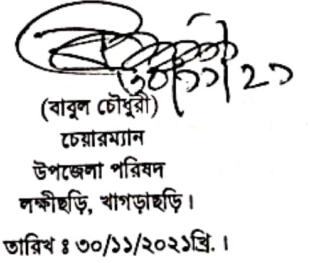 ৩০/১১/২১
(বাবুল চৌধুরী)
চেয়ারম্যান
উপজেলা পরিষদ
লক্ষীছড়ি, খাগড়াছড়ি।
তারিখ ঃ ৩০/১১/২০২১খ্রি. ।